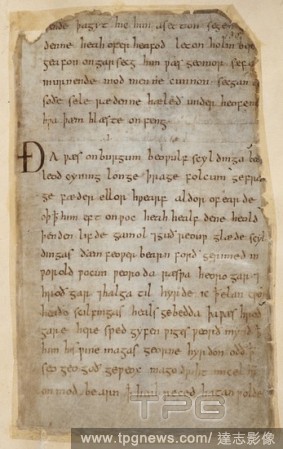 denne heah ofer heafod leton holm ber
geafon on garsecg him ƿæs geomor sefa
murnende mod men ne cunnon secgan
soðe sele rædenne hæleð under heofen
hƿa þæm hlæste onfeng.
ÐA ƿæs on burgum beoƿulf scyldinga
leod cyning longe þrage folcum gefræ
ge fæder ellor hƿearf aldor of earde
oþ ꝥ him eft onƿoc heah healfdene heold
þenden lifde gamol ⁊ guð reouƿ glæde scyl
dingas ðæm feoƿer bearn forð gerimed in
ƿorold ƿocun ƿeoroda ræsƿa heorogar ⁊
hroðgar ⁊ halga til hyrde ic ꝥ elan
heaðo scilfingas heals gebedda þa ƿæs hroð
gare here sped gyfen ƿiges ƿeorð mynd ꝥ
him his ƿine magas georne hyrdon oðð ꝥ
seo geogoð geƿeox mago driht micel
on mod be arn ꝥ heal reced hatan ƿolde
TPG
www.tpgnews.com/達志影像